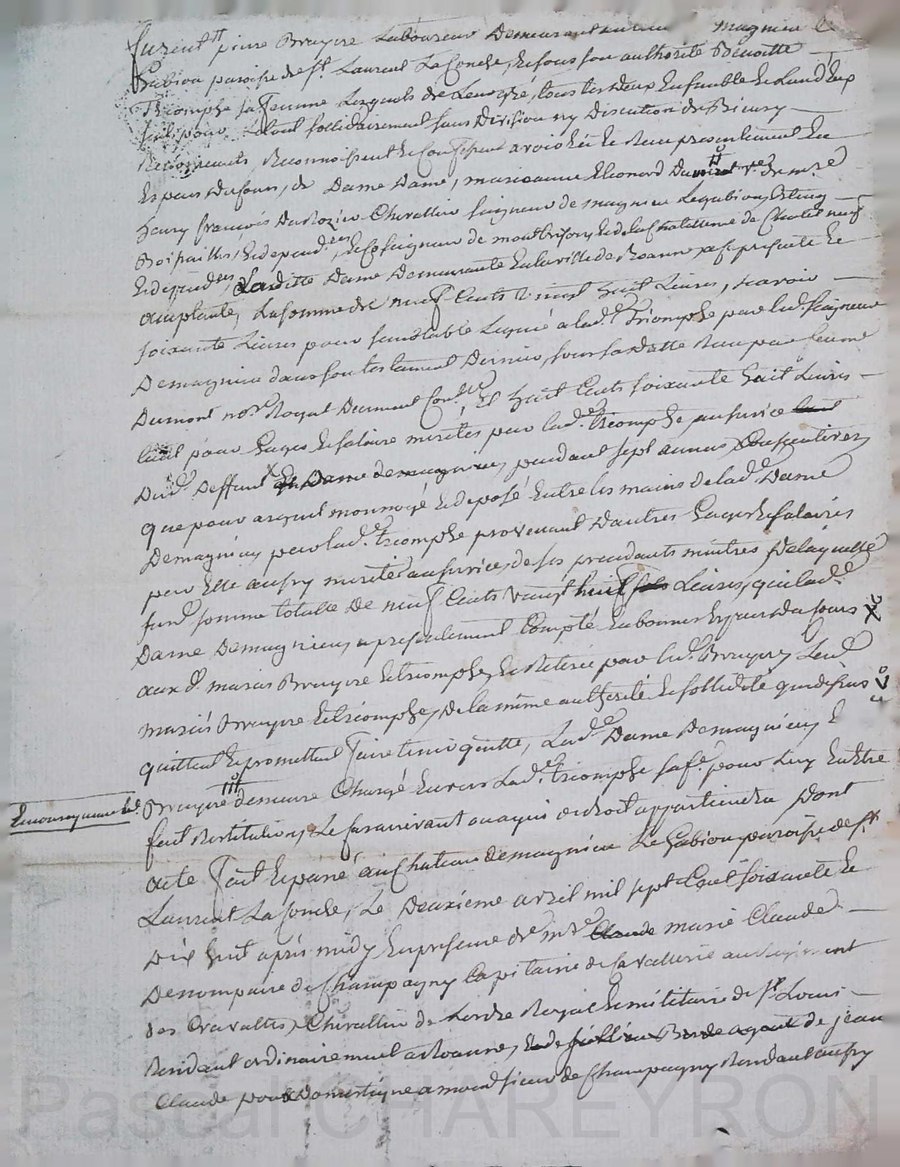 furent pierre Bruyere Laboureur Demeurant magnieu
Gabion paroisse de st Laurent La Conche, Et sous son authorité Benoitte
Triomphe sa femme Lesquels de Leur gré, tous les deux Ensemble Et Lun d'eux
seul pour Le tout sollidairement sans Division ny Discution de Biens
Reconnoissent Et Confessent avoir Eu Et Reçu presentement En
Especes Du Cours, de Dame Dame, marieanne Eleonord v.e de m.re
henry francois Durozier Chevallier seigneur de magnieu Legabion,
Et Coseigneur de montbrison, Et de la Chatellenie de Chatel neuf
Laditte Dame Demeurante En la ville de Roanne
La somme de neuf Cents vingt huit Livres, scavoir
soixante Livres pour semblable Legué a lad.e Triomphe par led. seigneur
Demagnieu dans son testament Dernier, sous sa datte Reçu par
Dumont no.re Royal Et huit Cents soixante huit Livres
tant pour Gages Et salaire merités par lad.e triomphe au service
Dud. Deffunt Dame demagnieu, pendant sept années Consecutives,
que pour argent monnoyé Et deposé Entre les mains de lad.e Dame
Demagnieu par lad.e triomphe provenant D'autres Gages Et salaires
par Elle aussy merités au service, de ses precedants maitres, De laquelle
somme totalle De neuf Cents vaingt huit Livres, que lad.e
Dame Demagnieu, a presentement Compté En bonnes Especes Du Cours
aux d. mariés Bruyere Et triomphe, Et Retiré par led. Bruyere, Lesd.
mariés Bruyere Et triomphe, De la même authorité Et sollidité que dessus
quittent Et promettent faire tenir quitte, Lad.e Dame Demagnieu, Et
Bruyere demeure Chargé Envers Lad.e triomphe sa fe. pour Luy En Etre
fait Restitution, Le cas arrivant ou a qui de droit appartiendra Dont
acte fait Et passé au Chateau demagnieu Le Gabion paroisse de st
Laurent La Conche, Le Deuxiême avril mil sept Cent soixante Et
Dix huit après midy En presence de m.re Claude marie Claude
Denompaire de Champagny Capitaine de Cavallerie au Regiment
des Cravattes, Chevallier de Lordre Royal Et militaire de st Louis
Residant ordinairement a Roanne, Et de jean
Claude Domestique a mond. sieur de Champagny Residant aussy
Pascal CHAREYRON